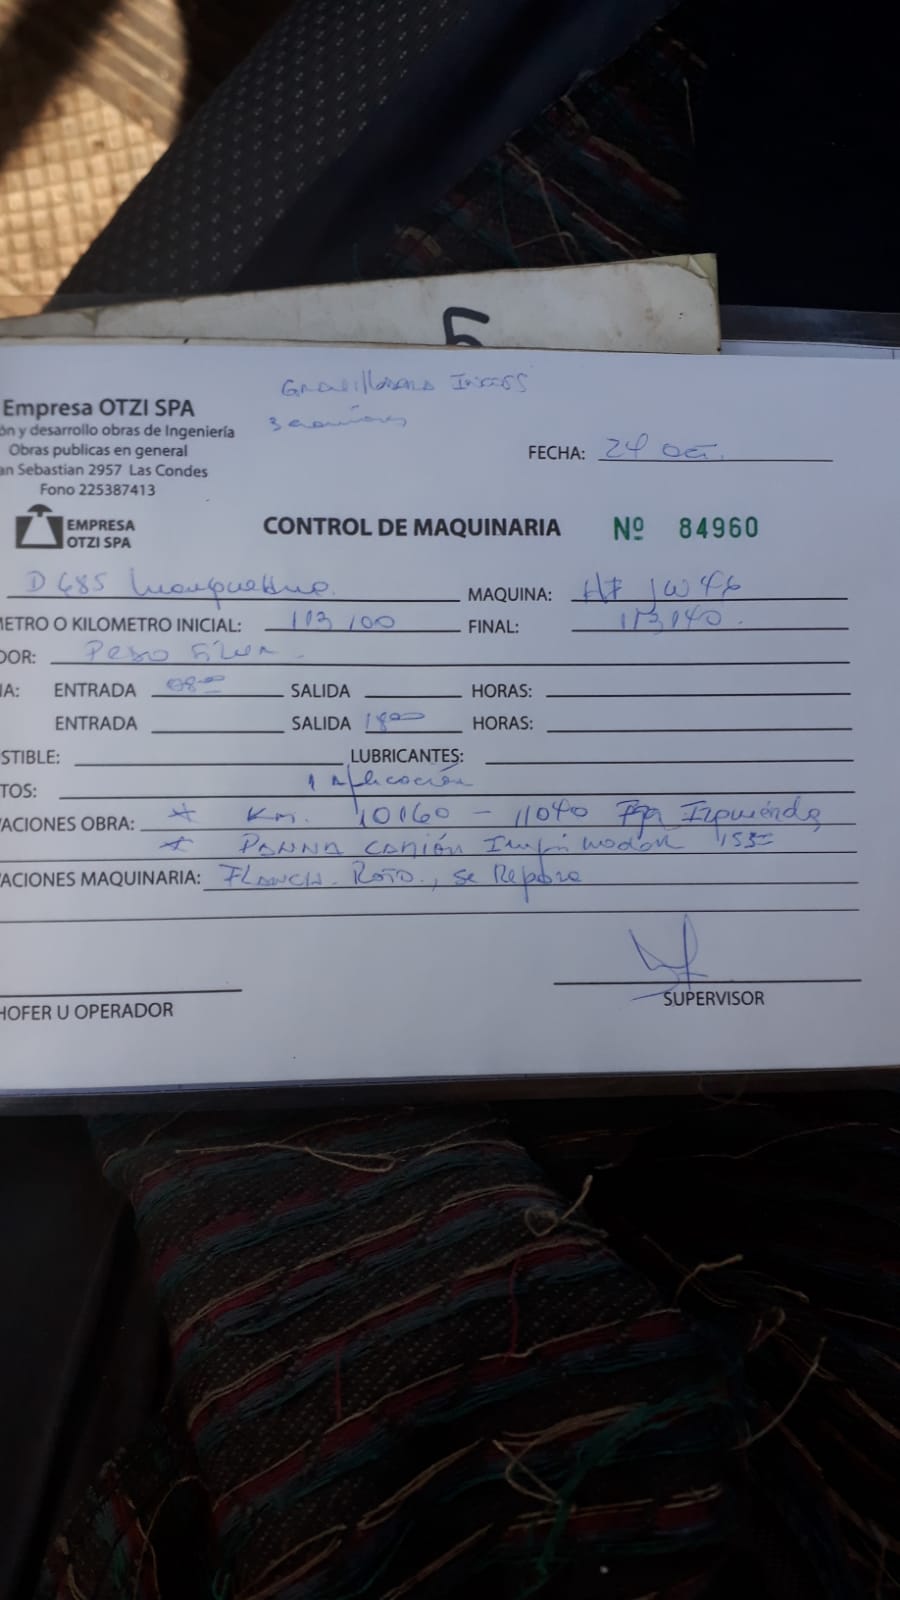 5
3 camiones
Empresa OTZI SPA
ón y desarrollo obras de Ingeniería
Obras publicas en general
an Sebastian 2957 Las Condes
Fono 225387413
FECHA: 24 oct.
EMPRESA
OTZI SPA
CONTROL DE MAQUINARIA Nº 84960
D 685 MAQUINA: JW 46
METRO O KILOMETRO INICIAL: 113 100 FINAL: 113,140.
DOR: Pedro Silva
IA: ENTRADA 08:00 SALIDA HORAS:
ENTRADA SALIDA 18:00 HORAS:
STIBLE: LUBRICANTES:
TOS: 1 Aplicación
VACIONES OBRA: * Km. 10160 - 11040 Izquierda
* PANNA CAMIÓN Imprimador 1530
VACIONES MAQUINARIA: ROTO., se Repara
HOFER U OPERADOR
SUPERVISOR